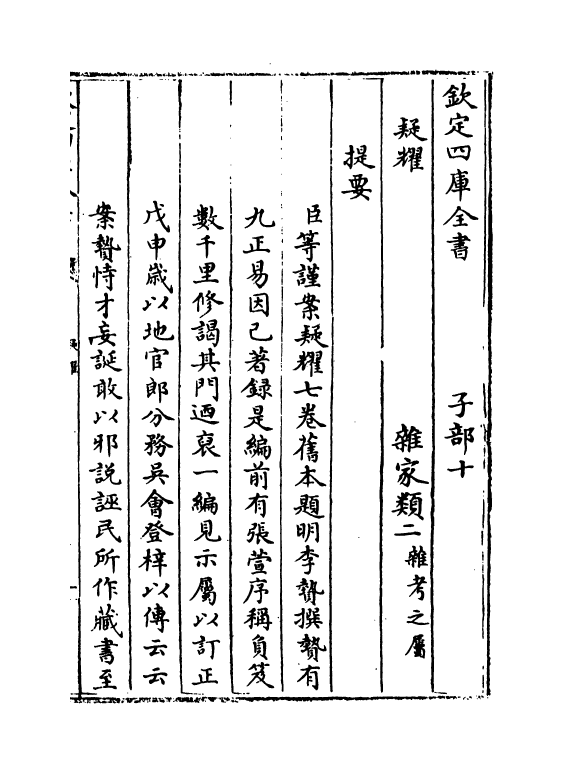 欽定四庫全書　子部十
疑耀　雜家類二雜考之屬
提要
臣等謹案疑耀七卷舊本題明李贄撰贄有
九正易因已著録是編前有張萱序稱負笈
數千里修謁其門迺裒一編見示屬以訂正
戊申嵗以地官郎分務吳會登梓以傳云云
案贄恃才妄誕敢以邪說誣民所作藏書至